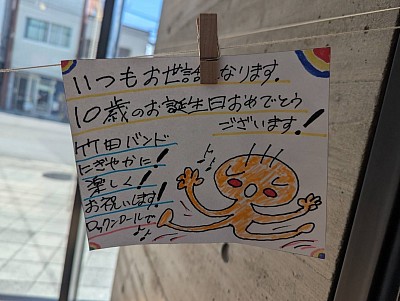 いつもお世話になります。
10歳のお誕生日おめでとう
ございます!
竹田バンド
にぎやかに!
楽しく!
お祝いします!
ロックンロールで